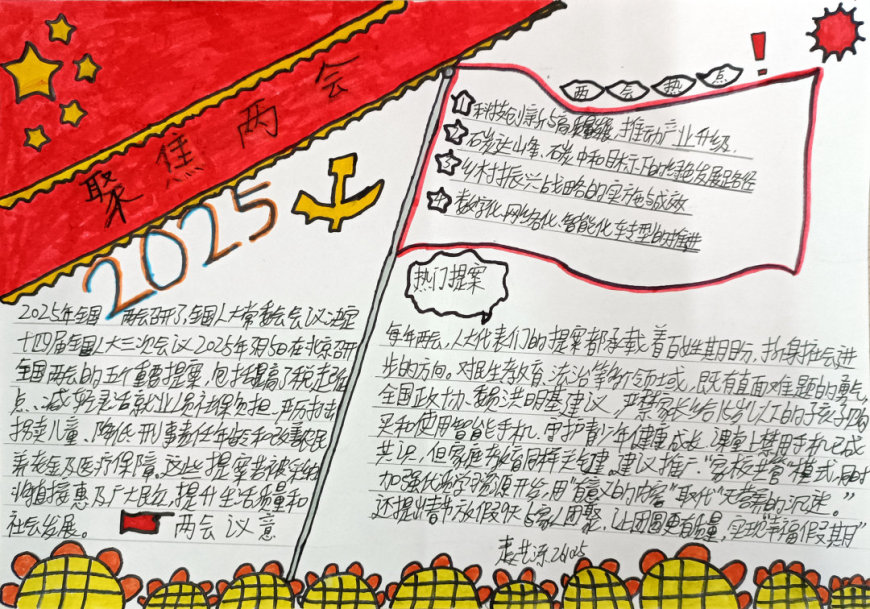 聚焦两会
2025
两会热点!
1 科技创新与高质量发展,推动产业升级.
2 石炭达山峰、石炭中和目标下的绿色发展路径
3 乡村振兴战略的实施与成效
4 数字化、网络化、智能化转型的推进
热门提案
2025年全国两会召开了,全国人大常委会会议决定
十四届全国人大三次会议2025年3月5日在北京召开
全国两会的五个重要提案,包括提高个税起征
点、减轻灵活就业人员社保负担、严厉打击
拐卖儿童、降低刑事责任年龄和改善农民
养老金及医疗保障。这些提案若被采纳
将直接惠及广大民众,提升生活质量和
社会发展。
两会议意
每年两会,人大代表们的提案都承载着百姓期盼,折射社会进
步的方向。对民生、教育、法治等领域,既有直面难题的勇气
全国政协委员洪明基建议,严禁家长给15岁以下的孩子购
买和使用智能手机.守护青少年健康成长,课堂上禁用手机已成
共识,但家庭教育同样关键.建议推广"家校共管"模式,同时
加强化数字资源开发,用"有意义的内容"取代"无营养的沉迷。"
还提出春节放假9天与家人团聚,让团圆更有质量,实现"幸福假期"